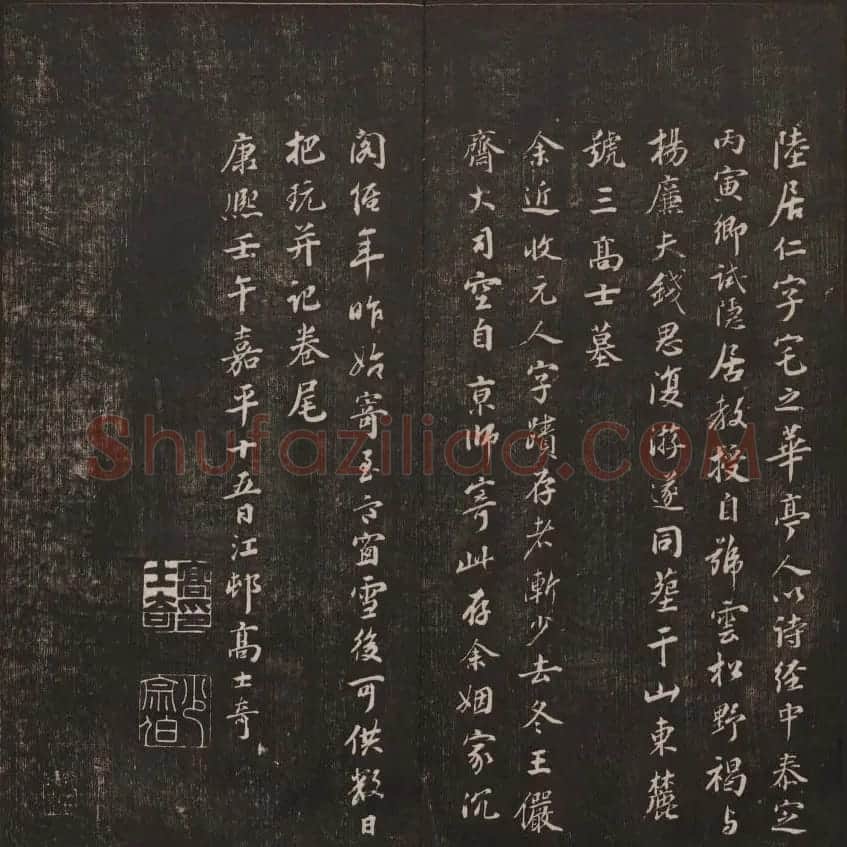 陸居仁字宅之華亭人以詩经中泰定
丙寅鄉試隱居教授自號雲松野褐与
楊廉夫錢思復游遂同塟干山東麓
號三髙士墓
余近收元人字蹟存者漸少去冬王儼
齋大司空自京師寄此存余姻家沉
阁經年昨始寄至方窗雪後可供数日
把玩并记卷尾
康熙壬午嘉平十五日江邨髙士奇
髙士奇印
宗伯
Shufaziliao.COM